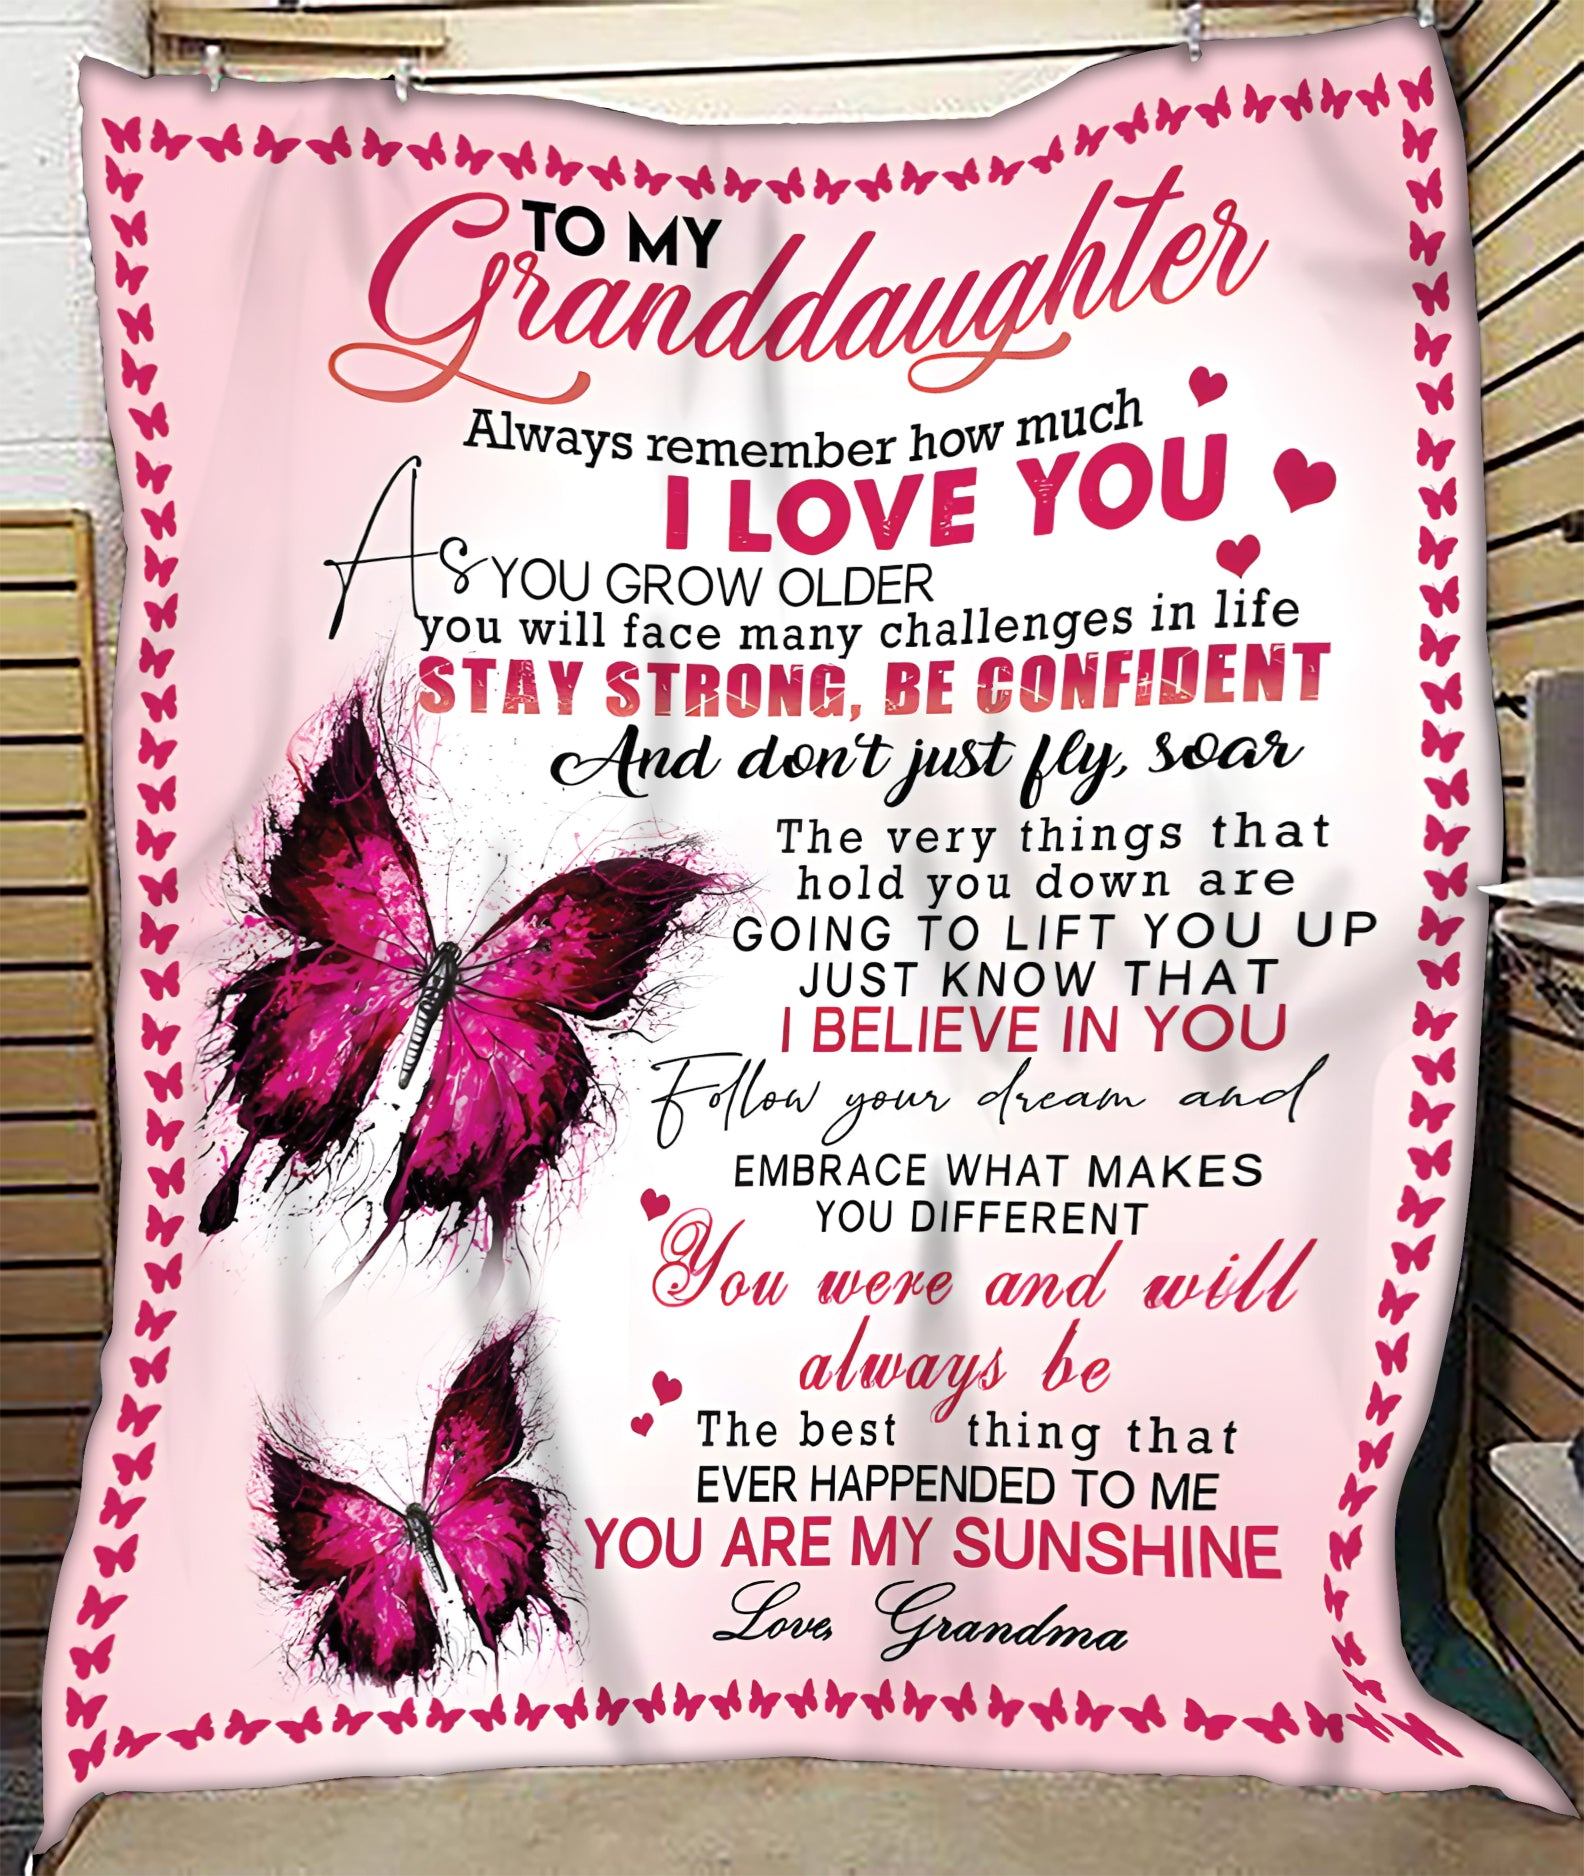 TO MY
Granddaughter
Always remember how much
I LOVE YOU
As YOU GROW OLDER
you will face many challenges in life
STAY STRONG, BE CONFIDENT
And don't just fly, soar
The very things that
hold you down are
GOING TO LIFT YOU UP
JUST KNOW THAT
I BELIEVE IN YOU
Follow your dream and
EMBRACE WHAT MAKES
YOU DIFFERENT
You were and will
always be
The best thing that
EVER HAPPENED TO ME
YOU ARE MY SUNSHINE
Love, Grandma